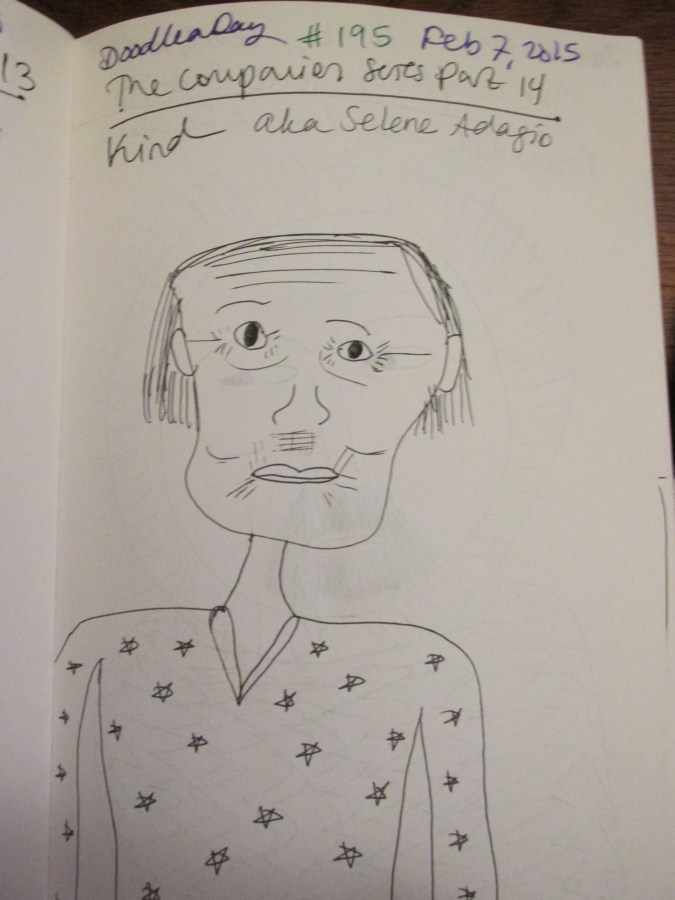 13
DoodleaDay #195 Feb 7, 2015
The Companion Series Part 14
Kind aka Selene Adagio